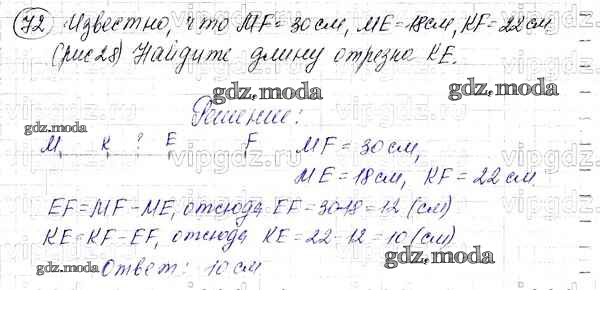 72 Известно, что MF = 30 см, ME = 18 см, KF = 22 см
(рис 28) Найдите длину отрезка KE.
gdz.moda
gdz.moda
Решение:
gdz.moda
M K ? E F MF = 30 см,
vipgdz.ru
ME = 18 см, KF = 22 см.
EF = MF - ME, отсюда EF = 30-18 = 12 (см)
KE = KF - EF, отсюда KE = 22-12 = 10 (см)
gdz.moda
gdz.moda
Ответ: 10 см